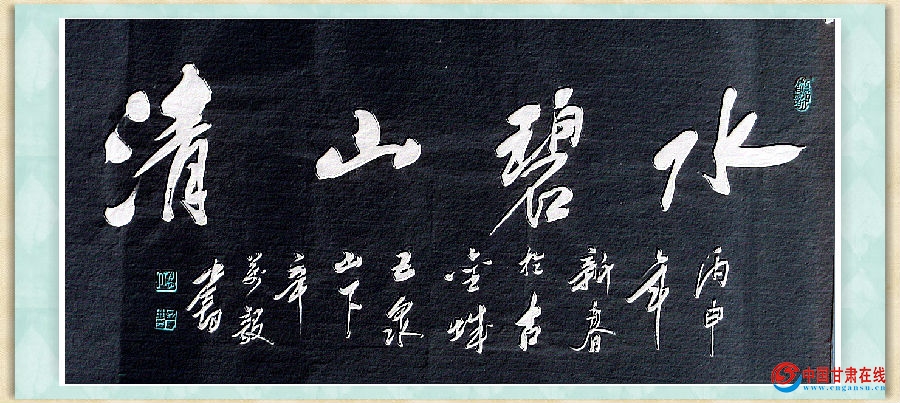 水碧山清
丙申
年
新春
於古
金城
五泉
山下
辛
万毅
书
中国甘肃在线
www.cngansu.cn